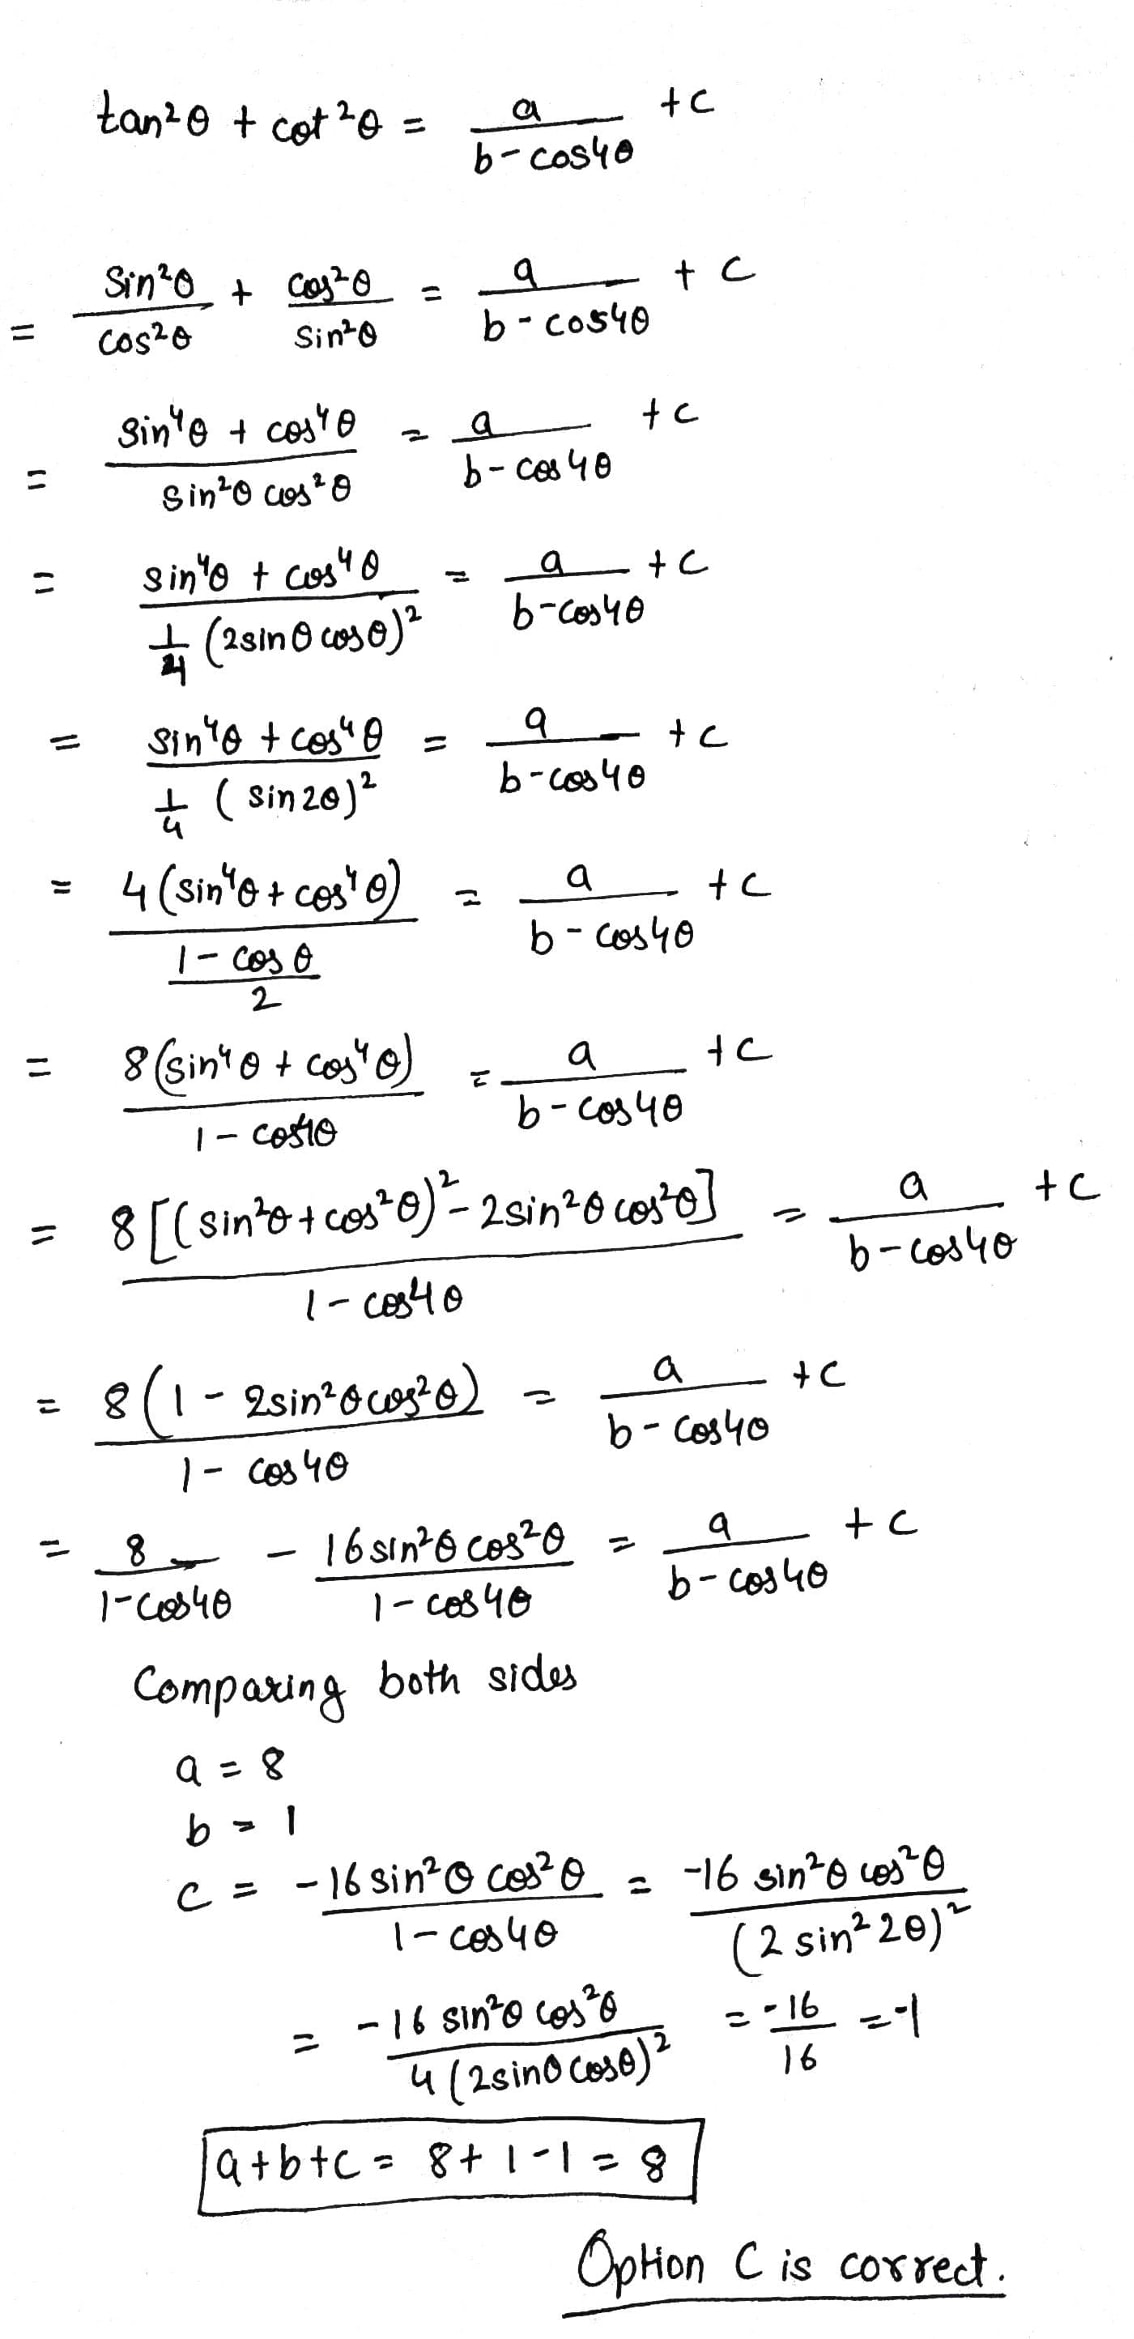 tan²θ + cot²θ = a/(b-cos4θ) + c
= sin²θ/cos²θ + cos²θ/sin²θ = a/(b-cos4θ) + c
= (sin⁴θ + cos⁴θ)/(sin²θ cos²θ) = a/(b-cos4θ) + c
= (sin⁴θ + cos⁴θ)/(1/4 (2sinθ cosθ)²) = a/(b-cos4θ) + c
= (sin⁴θ + cos⁴θ)/(1/4 (sin2θ)²) = a/(b-cos4θ) + c
= 4(sin⁴θ + cos⁴θ)/((1-cosθ)/2) = a/(b-cos4θ) + c
= 8(sin⁴θ + cos⁴θ)/(1-cos4θ) = a/(b-cos4θ) + c
= 8[(sin²θ + cos²θ)² - 2sin²θ cos²θ]/(1-cos4θ) = a/(b-cos4θ) + c
= 8(1 - 2sin²θ cos²θ)/(1-cos4θ) = a/(b-cos4θ) + c
= 8/(1-cos4θ) - 16sin²θ cos²θ/(1-cos4θ) = a/(b-cos4θ) + c
Comparing both sides
a = 8
b = 1
c = -16sin²θ cos²θ/(1-cos4θ) = -16 sin²θ cos²θ/(2 sin²2θ)²
= -16 sin²θ cos²θ/(4(2sinθ cosθ)²) = -16/16 = -1
a+b+c = 8+1-1 = 8
Option C is correct.